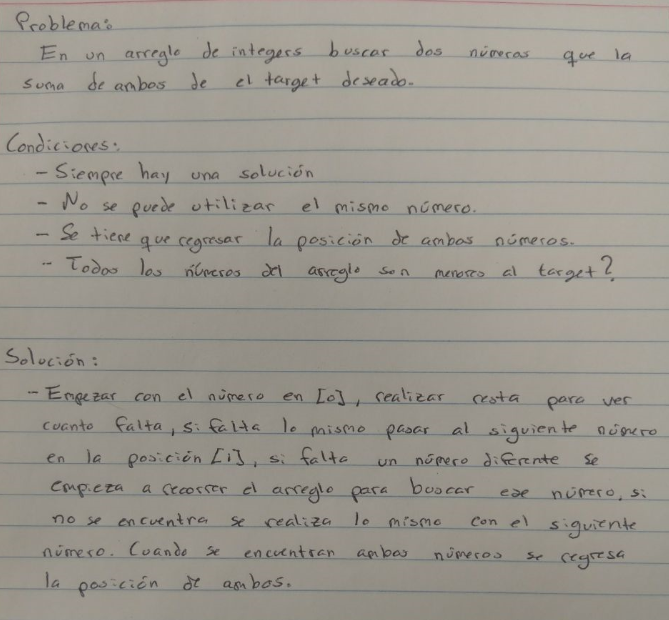 Problema:
En un arreglo de integers buscar dos números que la
suma de ambos de el target deseado.
Condiciones:
- Siempre hay una solución
- No se puede utilizar el mismo número.
- Se tiene que regresar la posición de ambos números.
- Todos los números del arreglo son menores al target?
Solución:
- Empezar con el número en [0], realizar resta para ver
cuanto falta, si falta lo mismo pasar al siguiente número
en la posición [i], si falta un número diferente se
empieza a recorrer el arreglo para buscar ese número, si
no se encuentra se realiza lo mismo con el siguiente
número. Cuando se encuentran ambos números se regresa
la posición de ambos.